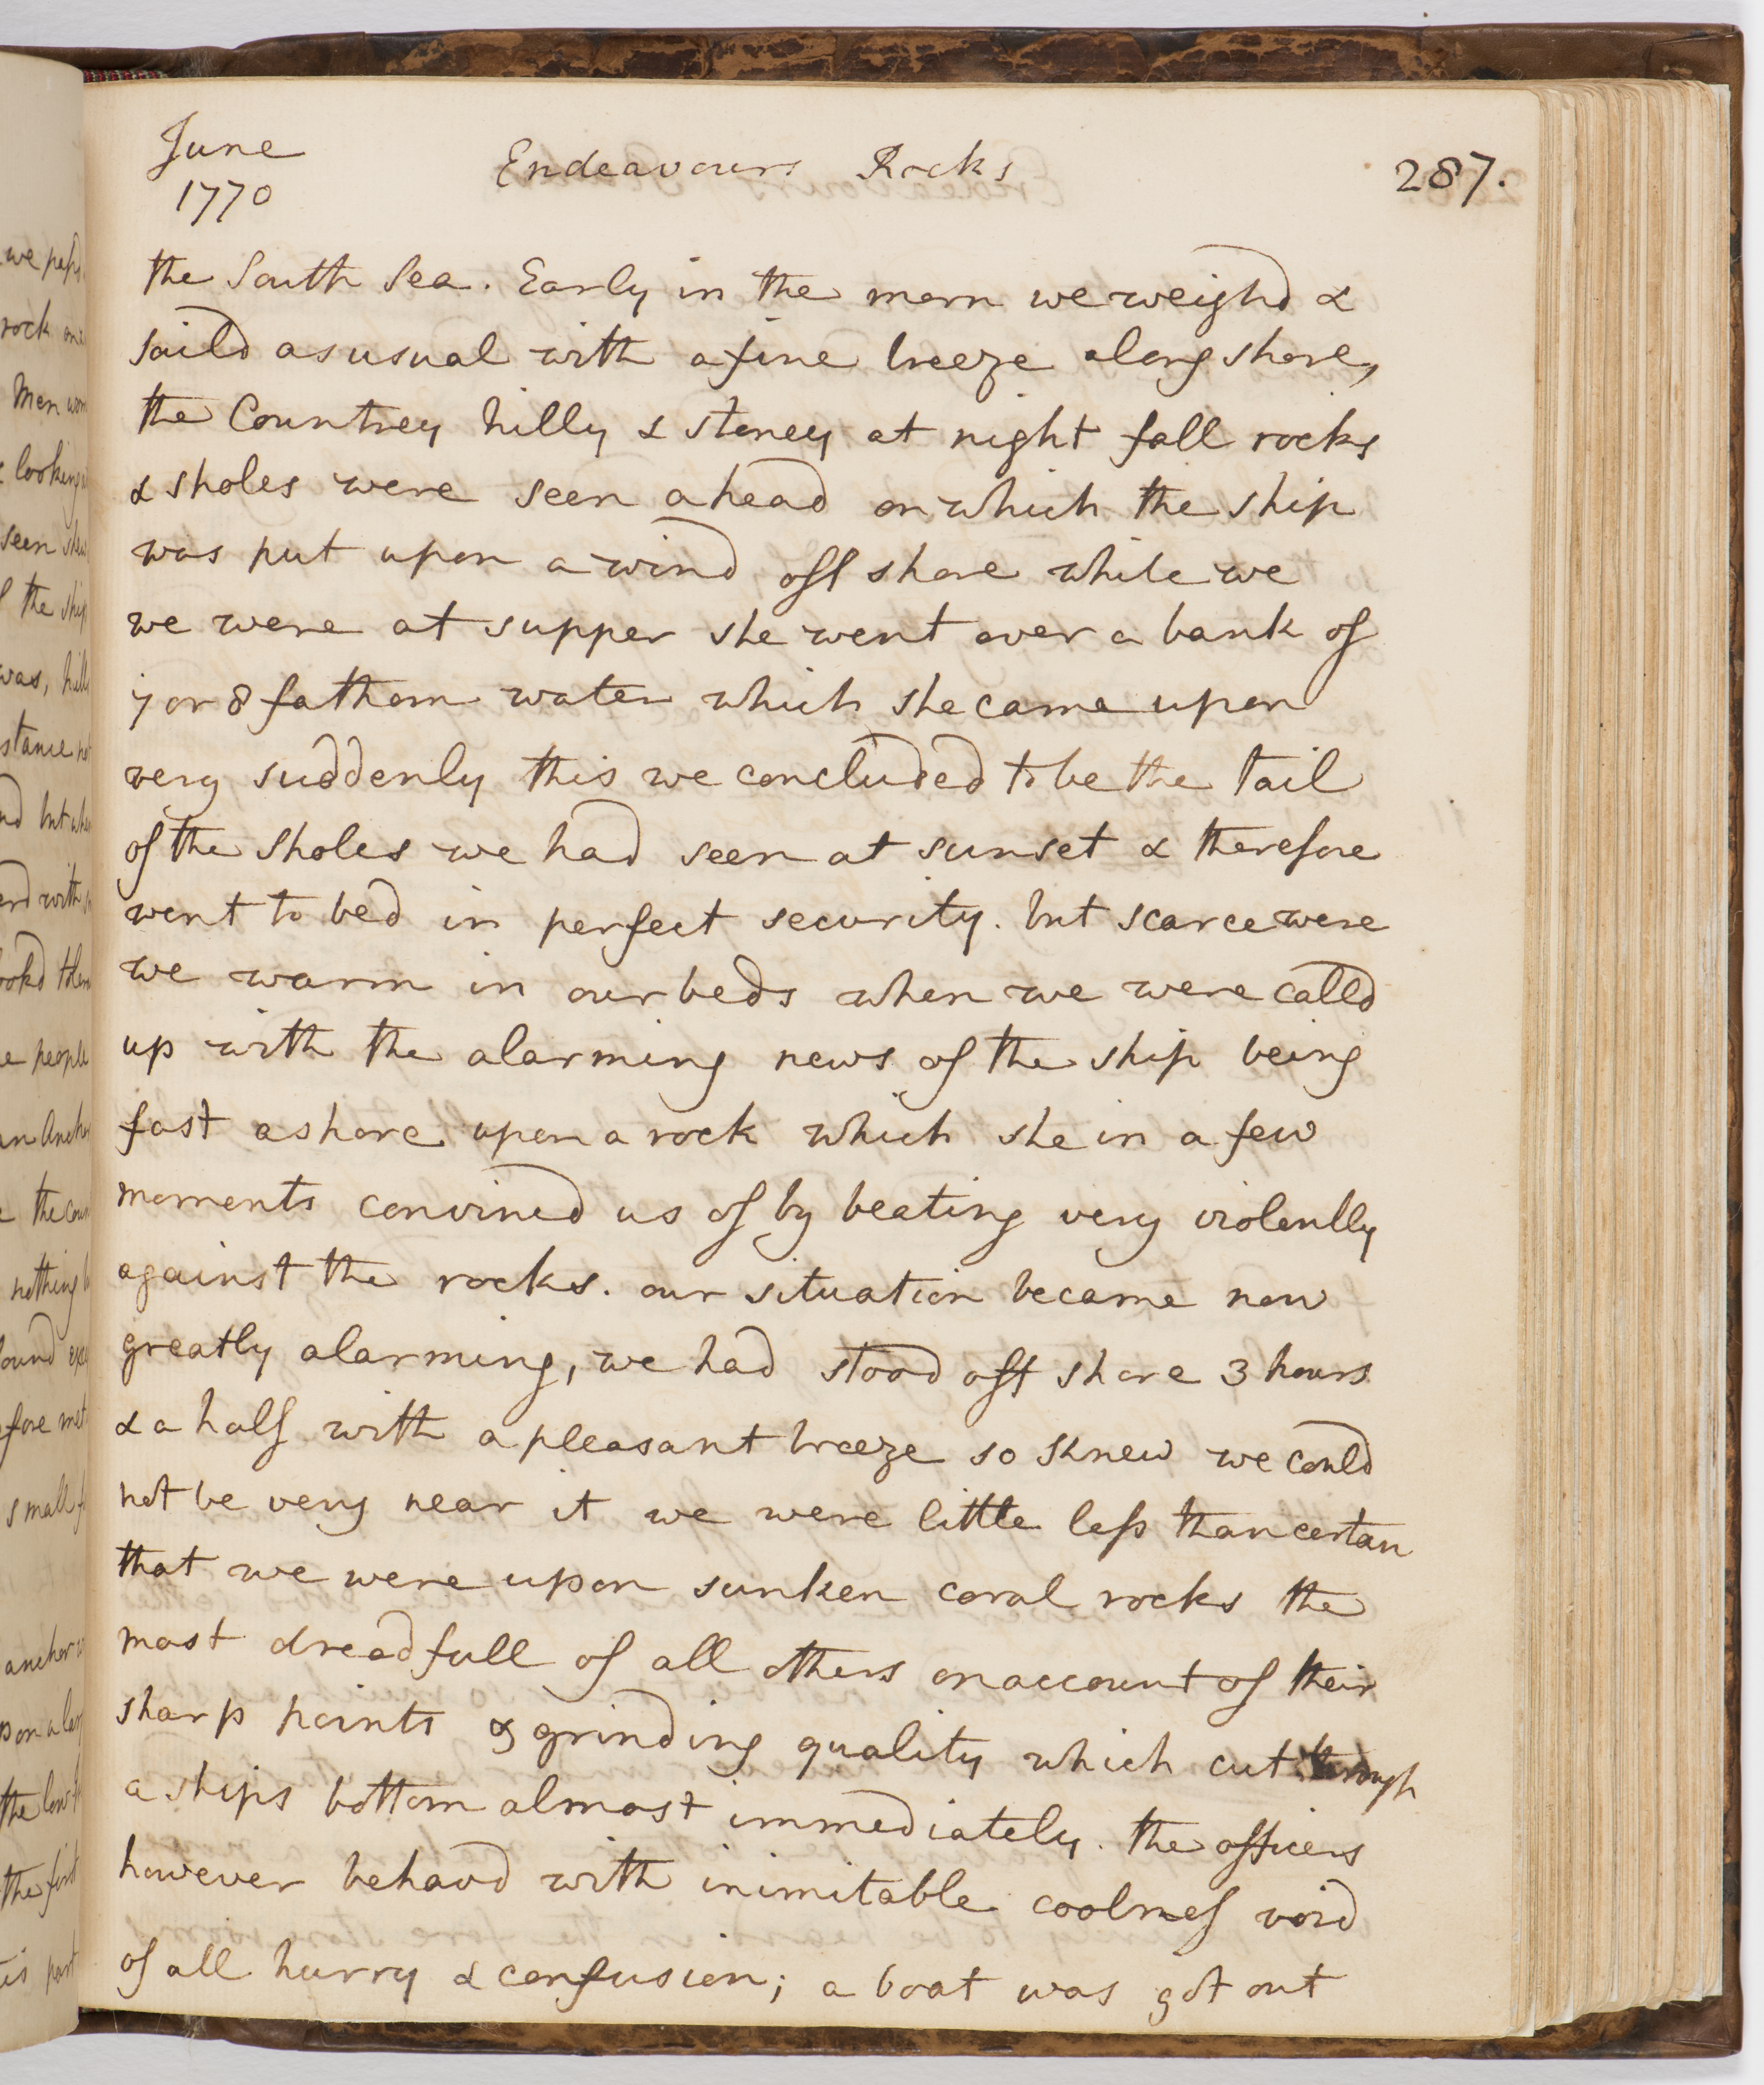 June
1770
Endeavours Rocks
287.
the South Sea. Early in the morn we weighd &
saild as usual with a fine breeze along shore,
the Countrey hilly & stoney at night fall rocks
& sholes were seen ahead on which the ship
was put upon a wind off shore while we
we were at supper she went over a bank of
7 or 8 fathom water which she came upon
very suddenly this we concluded to be the tail
of the Sholes we had seen at sunset & therefore
went to bed in perfect security. but scarce were
we warm in our beds when we were calld
up with the alarming news of the ship being
fast ashore upon a rock which she in a few
moments convined us of by beating very violently
against the rocks. our situation became now
greatly alarming, we had stood off shore 3 hours
& a half with a pleasant breeze so knew we could
not be very near it we were little less than certan
that we were upon sunken coral rocks the
most dreadfull of all others on account of their
sharp points & grinding quality which cut through
a ships bottom almost immediately. the officers
however behavd with inimitable coolness void
of all hurry & confusion; a boat was got out
we
rock
Men
looking
seen
the ship
was,
but
with
people
the
nothing
fore
small
anchor
the
the